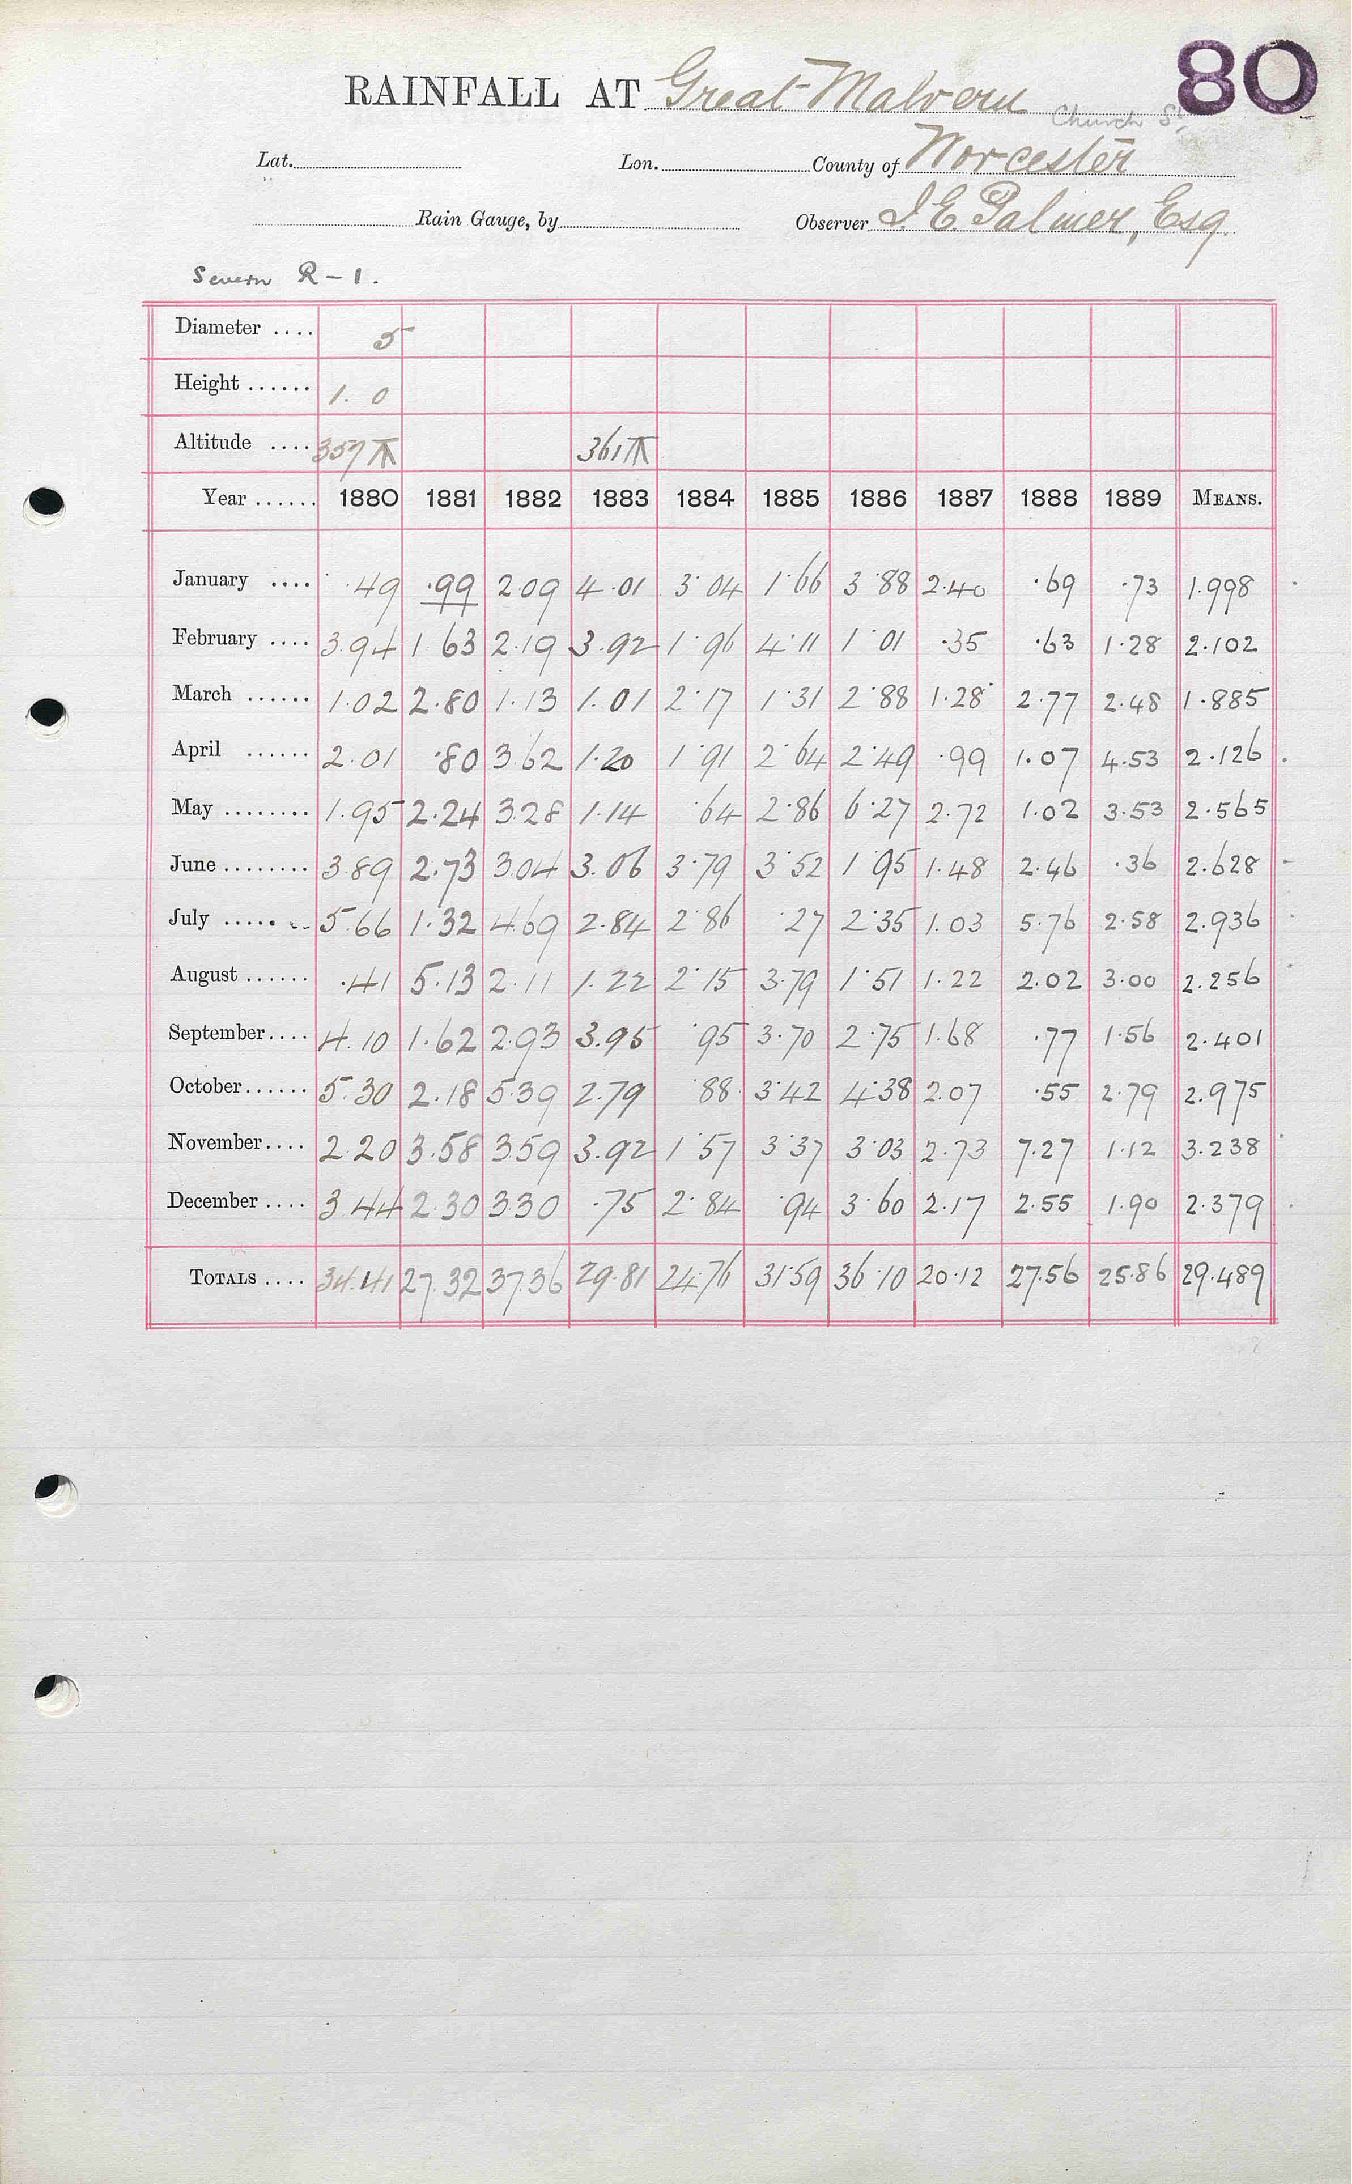 80
RAINFALL AT Great Malvern Church St.
Lat. Lon. County of Worcester
Rain Gauge, by Observer I. E. Palmer, Esq
Severn R - 1.
Diameter .... 5
Height ...... 1. 0
Altitude .... 357 361
Year ...... 1880 1881 1882 1883 1884 1885 1886 1887 1888 1889 MEANS.
January .... .49 .99 2.09 4.01 3.04 1.66 3.88 2.40 .69 .73 1.998
February .... 3.94 1.63 2.19 3.92 1.96 4.11 1.01 .35 .63 1.28 2.102
March ...... 1.02 2.80 1.13 1.01 2.17 1.31 2.88 1.28 2.77 2.48 1.885
April ...... 2.01 .80 3.62 1.20 1.91 2.64 2.49 .99 1.07 4.53 2.126
May ........ 1.95 2.24 3.28 1.14 .64 2.86 6.27 2.72 1.02 3.53 2.565
June ........ 3.89 2.73 3.04 3.06 3.79 3.52 1.95 1.48 2.46 .36 2.628
July ........ 5.66 1.32 4.69 2.84 2.86 .27 2.35 1.03 5.76 2.58 2.936
August ...... .41 5.13 2.11 1.22 2.15 3.79 1.51 1.22 2.02 3.00 2.256
September.... 4.10 1.62 2.93 3.95 .95 3.70 2.75 1.68 .77 1.56 2.401
October...... 5.30 2.18 5.39 2.79 .88 3.42 4.38 2.07 .55 2.79 2.975
November.... 2.20 3.58 3.59 3.92 1.57 3.37 3.03 2.73 7.27 1.12 3.238
December .... 3.44 2.30 3.30 .75 2.84 .94 3.60 2.17 2.55 1.90 2.379
TOTALS .... 34.41 27.32 37.36 29.81 24.76 31.59 36.10 20.12 27.56 25.86 29.489